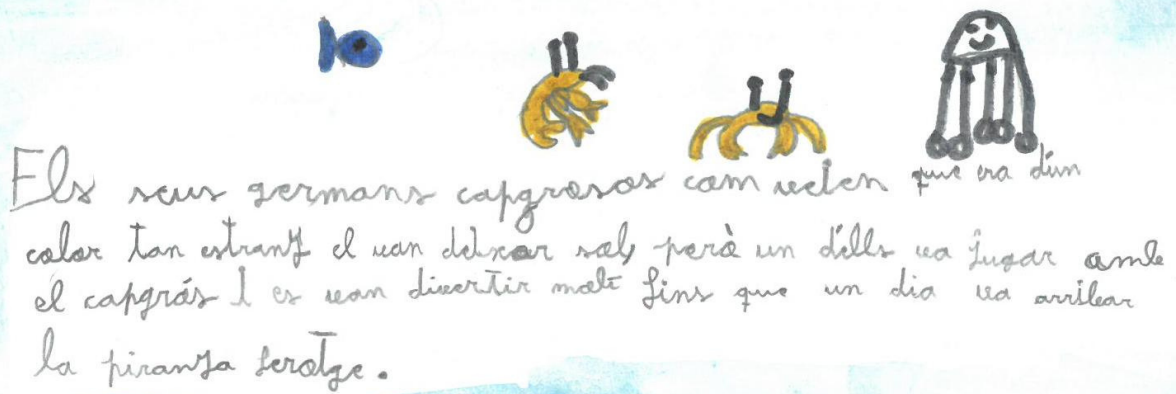 Els seus germans capgrosos com veien que era d'un
color tan estrany el van deixar sol, però un d'ells va jugar amb
el capgrós I es van divertir molt fins que un dia va arribar
la piranya ferotge.